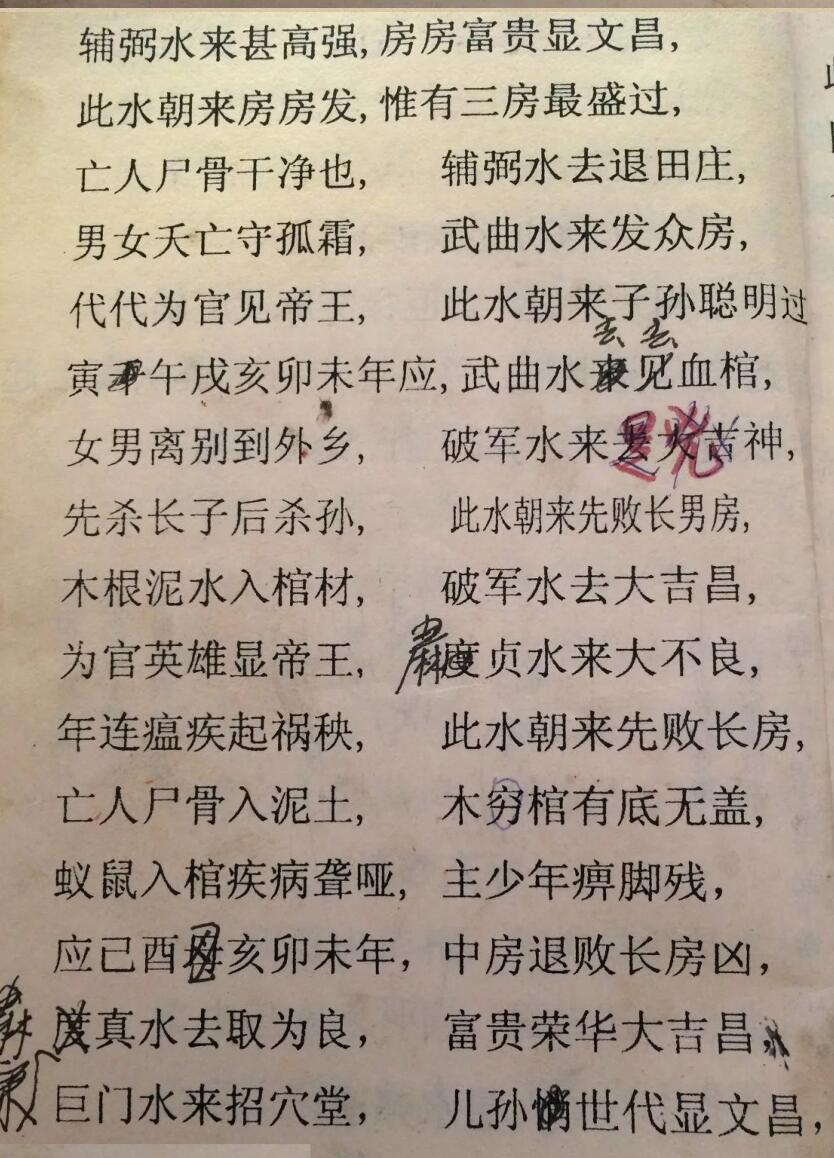 辅弼水来甚高强,房房富贵显文昌,
此水朝来房房发,惟有三房最盛过,
亡人尸骨干净也, 辅弼水去退田庄,
男女夭亡守孤霜, 武曲水来发众房,
代代为官见帝王, 此水朝来子孙聪明过
去 去
寅午戌亥卯未年应,武曲水来见血棺,
女男离别到外乡, 破军水来是凶神,
先杀长子后杀孙, 此水朝来先败长男房,
木根泥水入棺材, 破军水去大吉昌,
为官英雄显帝王, 廉贞水来大不良,
年连瘟疾起祸秧, 此水朝来先败长房,
亡人尸骨入泥土, 木穷棺有底无盖,
蚁鼠入棺疾病聋哑, 主少年痹脚残,
应已酉丑亥卯未年, 中房退败长房凶,
真水去取为良, 富贵荣华大吉昌,
巨门水来招穴堂, 儿孙世代显文昌,